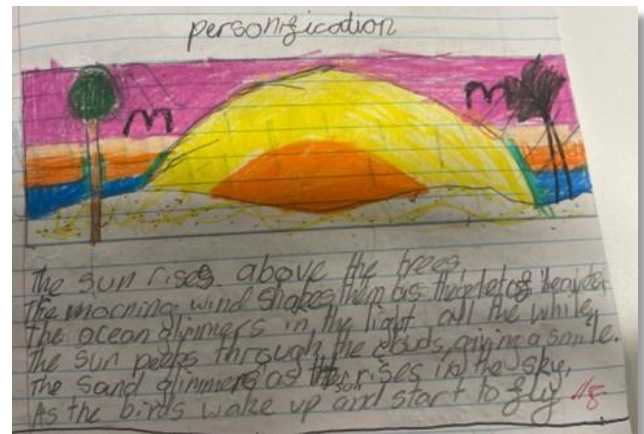 personification
The sun rises above the trees
The morning wind shakes them as the gates of heaven,
The ocean glimmers in the light all the while,
The sun peeps through the clouds, giving a smile.
The sand glimmers as the sun rises in the sky,
As the birds wake up and start to fly